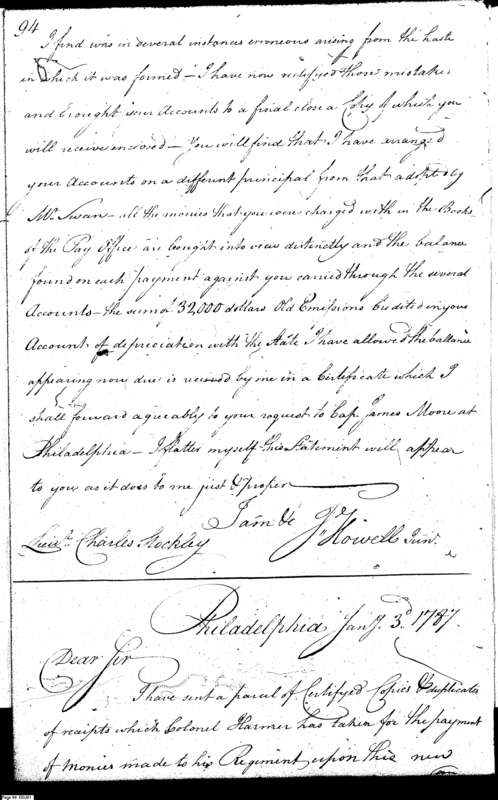 94
I find was in several instances erroneous arising from the haste
in which it was formed – I have now rectifyed those mistakes
and brought your Accounts to a final close a Copy of which you
will receive enclosed – You will find that I have arranged
your Accounts on a different principal from that adopted by
Mr. Swan – all the monies that you were charged with in the Books
of the Pay Office are bought into view distinctly and the balance
found on each payment against you carried through the several
Accounts – the sum of 32,000 dollars Old Emissions Credited in your
Account of depreciation with the State I have allowed the ballance
appearing now due is received by me in a Certificate which I
shall forward agueably to your request to Cap. James Moore at
Philadelphia – I flatter myself this Statement will appear
to you as it does to me just & proper
I am &c
Jn. Howell Junr.
Lieut. Charles Stockley
Philadelphia Jany. 3d 1787
Dear Sir
I have sent a parcel of Certifyed Copies & duplicates
of receipts which Colonel Harmer has taken for the payment
of monies made to his Regiment upon this new
Page 94: DDJ01